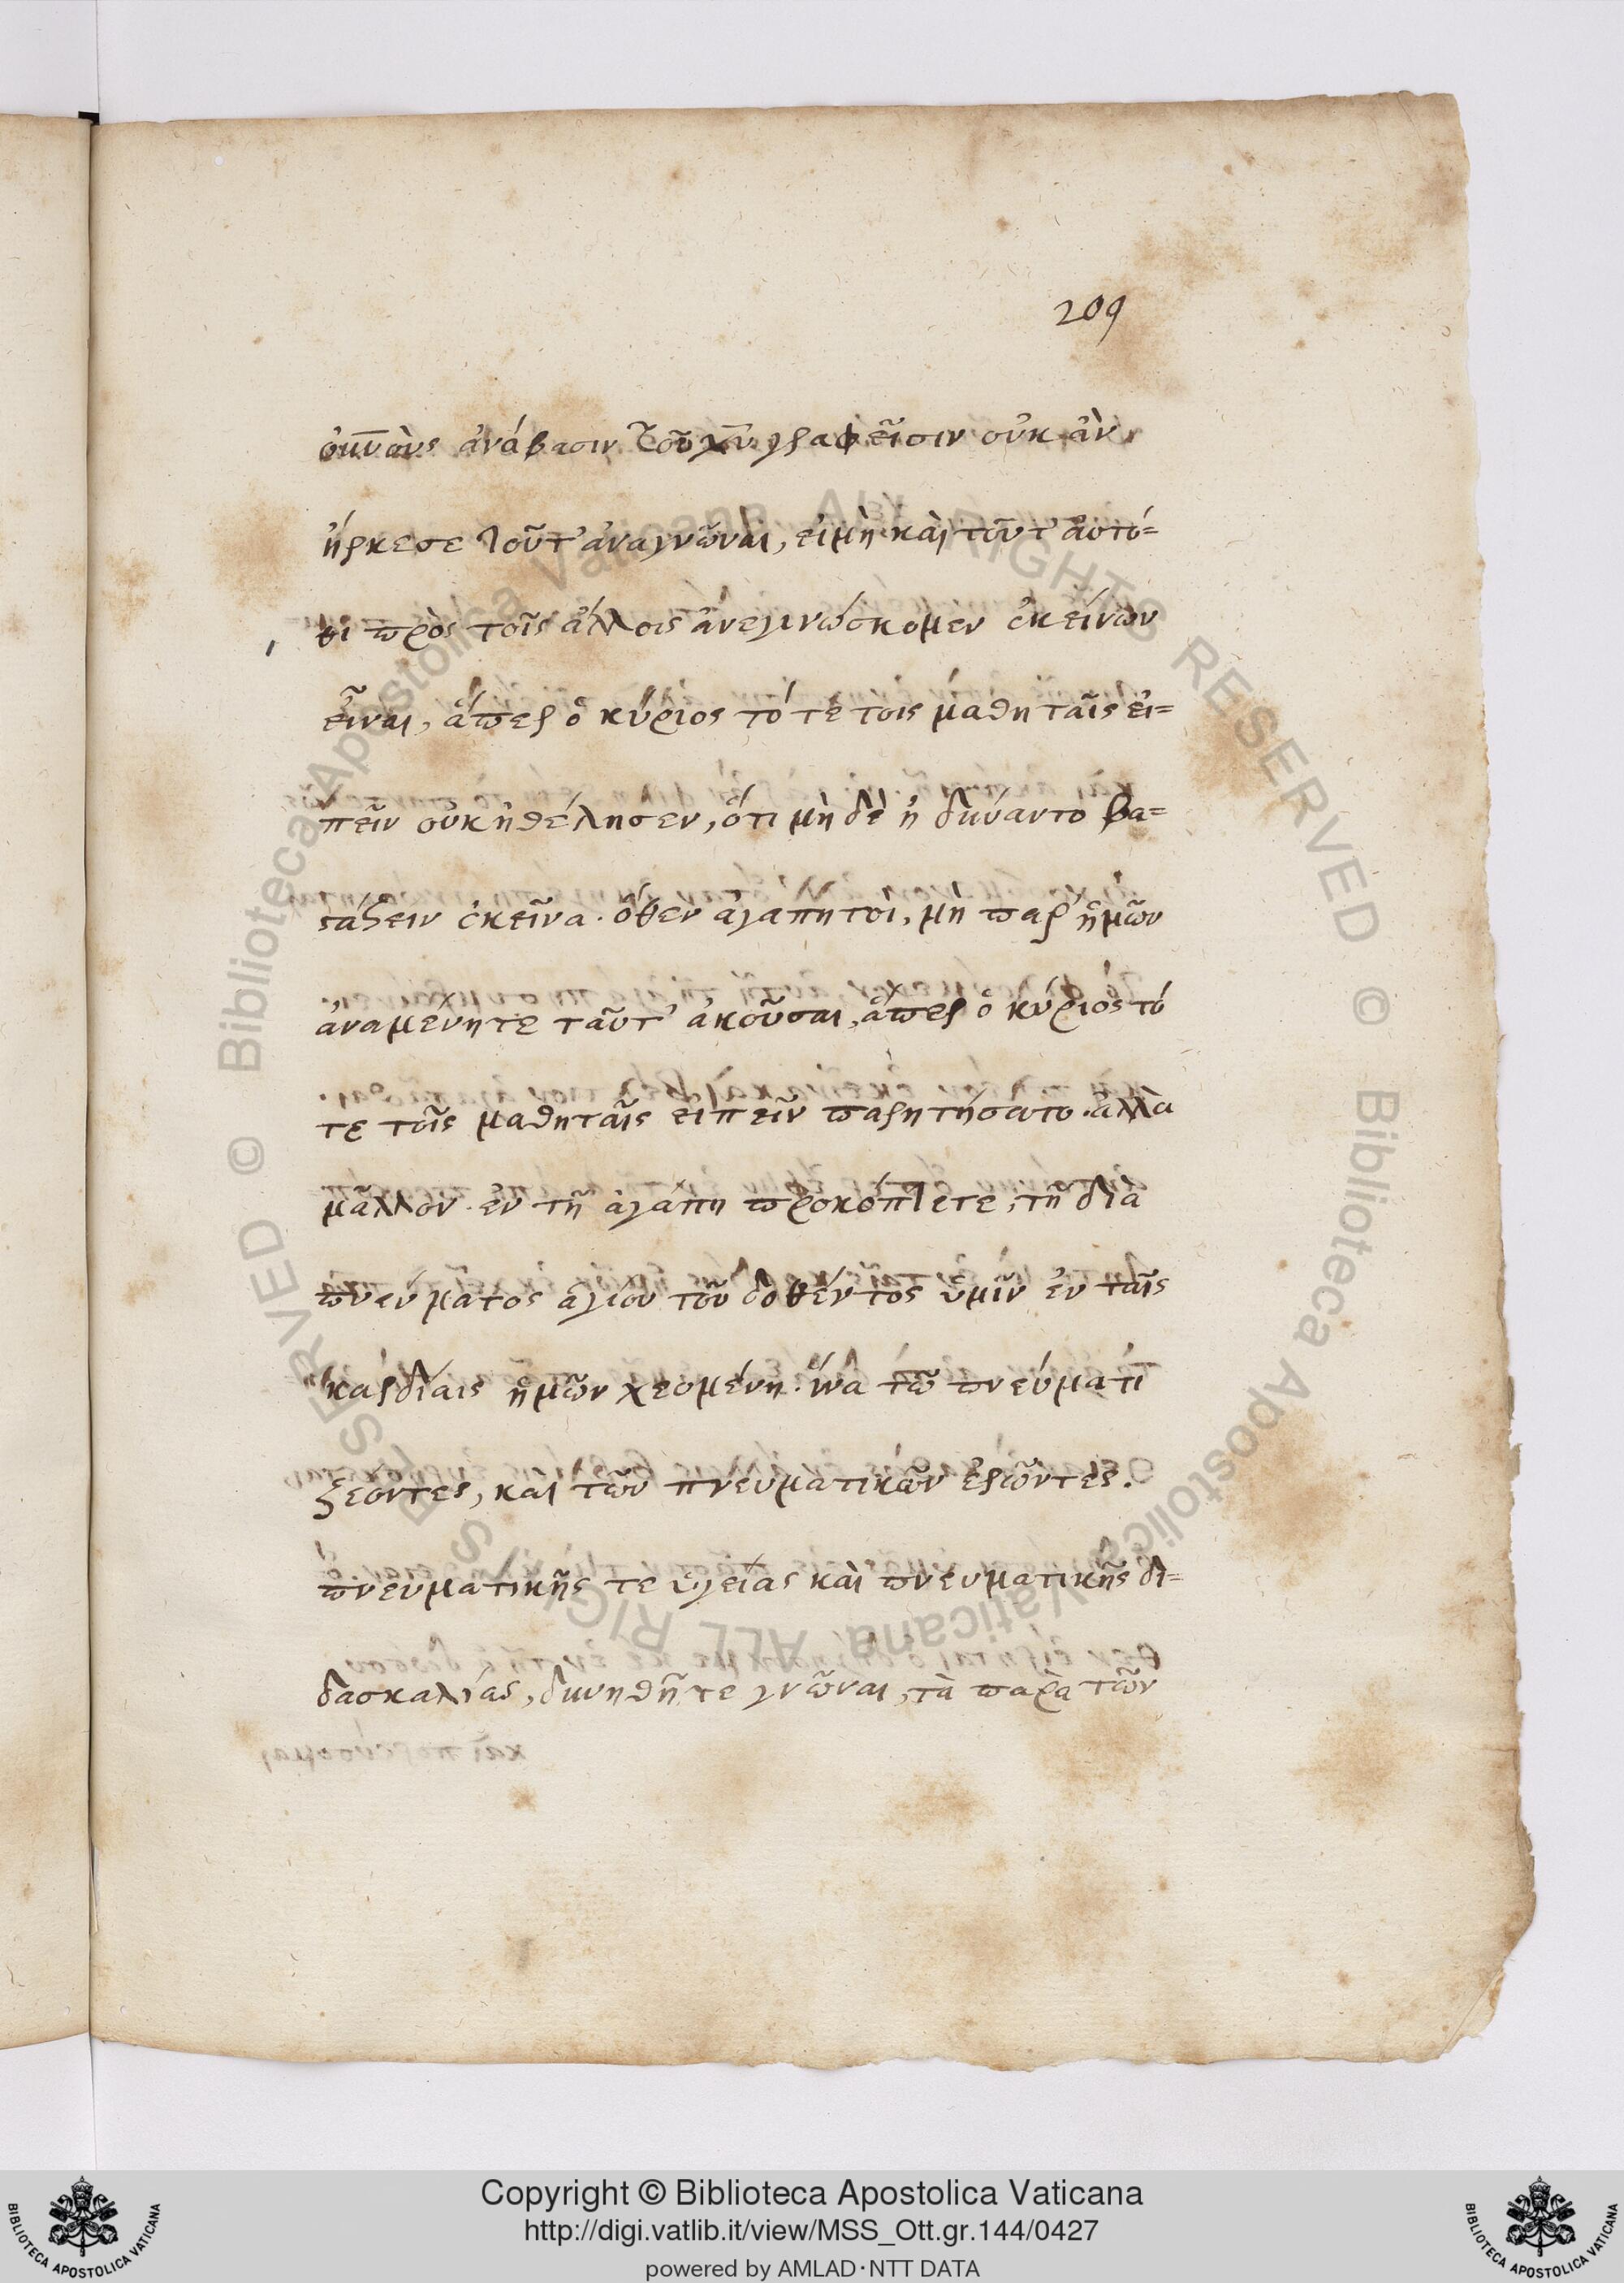 209
οὐνοὺς ἀνάβασιν τοῦ χυ γραφεῖσιν οὐκ ἂν
ἤρκεσε τοῦτ' ἀναγνῶναι, εἰ μὴ καὶ τοῦτ' αὐτό=
θι πρὸς τοῖς ἄλλοις ἀνεγινώσκομεν ἐκείνων
εἶναι, ἅπερ ὁ κύριος τότε τοις μαθηταῖς εἰ=
πεῖν οὐκ ἠθέλησεν, ὅτι μὴ δὲ ἠδύναντο βα=
στάζειν ἐκεῖνα. ὅθεν ἀγαπητοὶ, μὴ παρ' ἡμῶν
ἀναμένητε ταῦτ' ἀκοῦσαι, ἅπερ ὁ κύριος τό
τε τοῖς μαθηταῖς εἰπεῖν παρητήσατο. ἀλλὰ
μᾶλλον ἐν τῇ ἀγάπῃ προκόπτετε, τῇ διὰ
πνεύματος ἁγίου τοῦ δοθέντος ὑμῖν ἐν ταῖς
καρδίαις ἡμῶν χεομένῃ. ἵνα τῷ πνεύματι
ζέοντες, καὶ τῶν πνευματικῶν ἐρῶντες.
πνευματικῆς τε ὑγείας καὶ πνευματικῆς δι=
δασκαλίας, δυνηθῆτε γνῶναι, τὰ παρὰ τῶν
© Biblioteca Apostolica Vaticana ALL RIGHTS RESERVED © Biblioteca Apostolica Vaticana ALL RIGHTS RESERVED
Copyright © Biblioteca Apostolica Vaticana
http://digi.vatlib.it/view/MSS_Ott.gr.144/0427
powered by AMLAD·NTT DATA
BIBLIOTECA APOSTOLICA VATICANA
BIBLIOTECA APOSTOLICA VATICANA